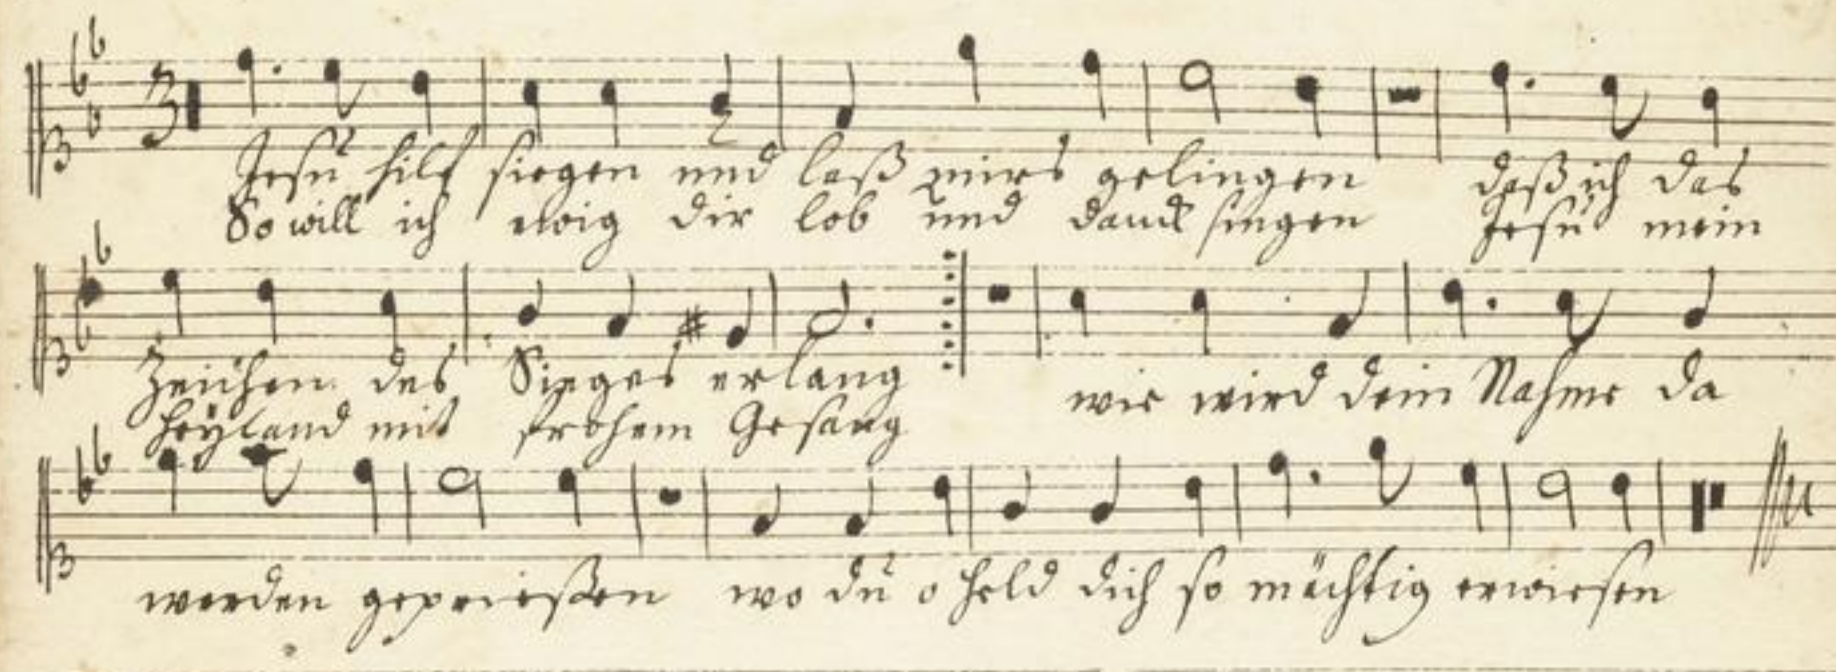 Jesu hilf siegen und laß mirs gelingen daß ich das
So will ich ewig dir lob und danck singen Jesu mein
Zeichen des Sieges erlang wie wird dein Nahme da
Heyland mit frohem Gesang
werden gepriesen wo du o held dich so mächtig erwiesen